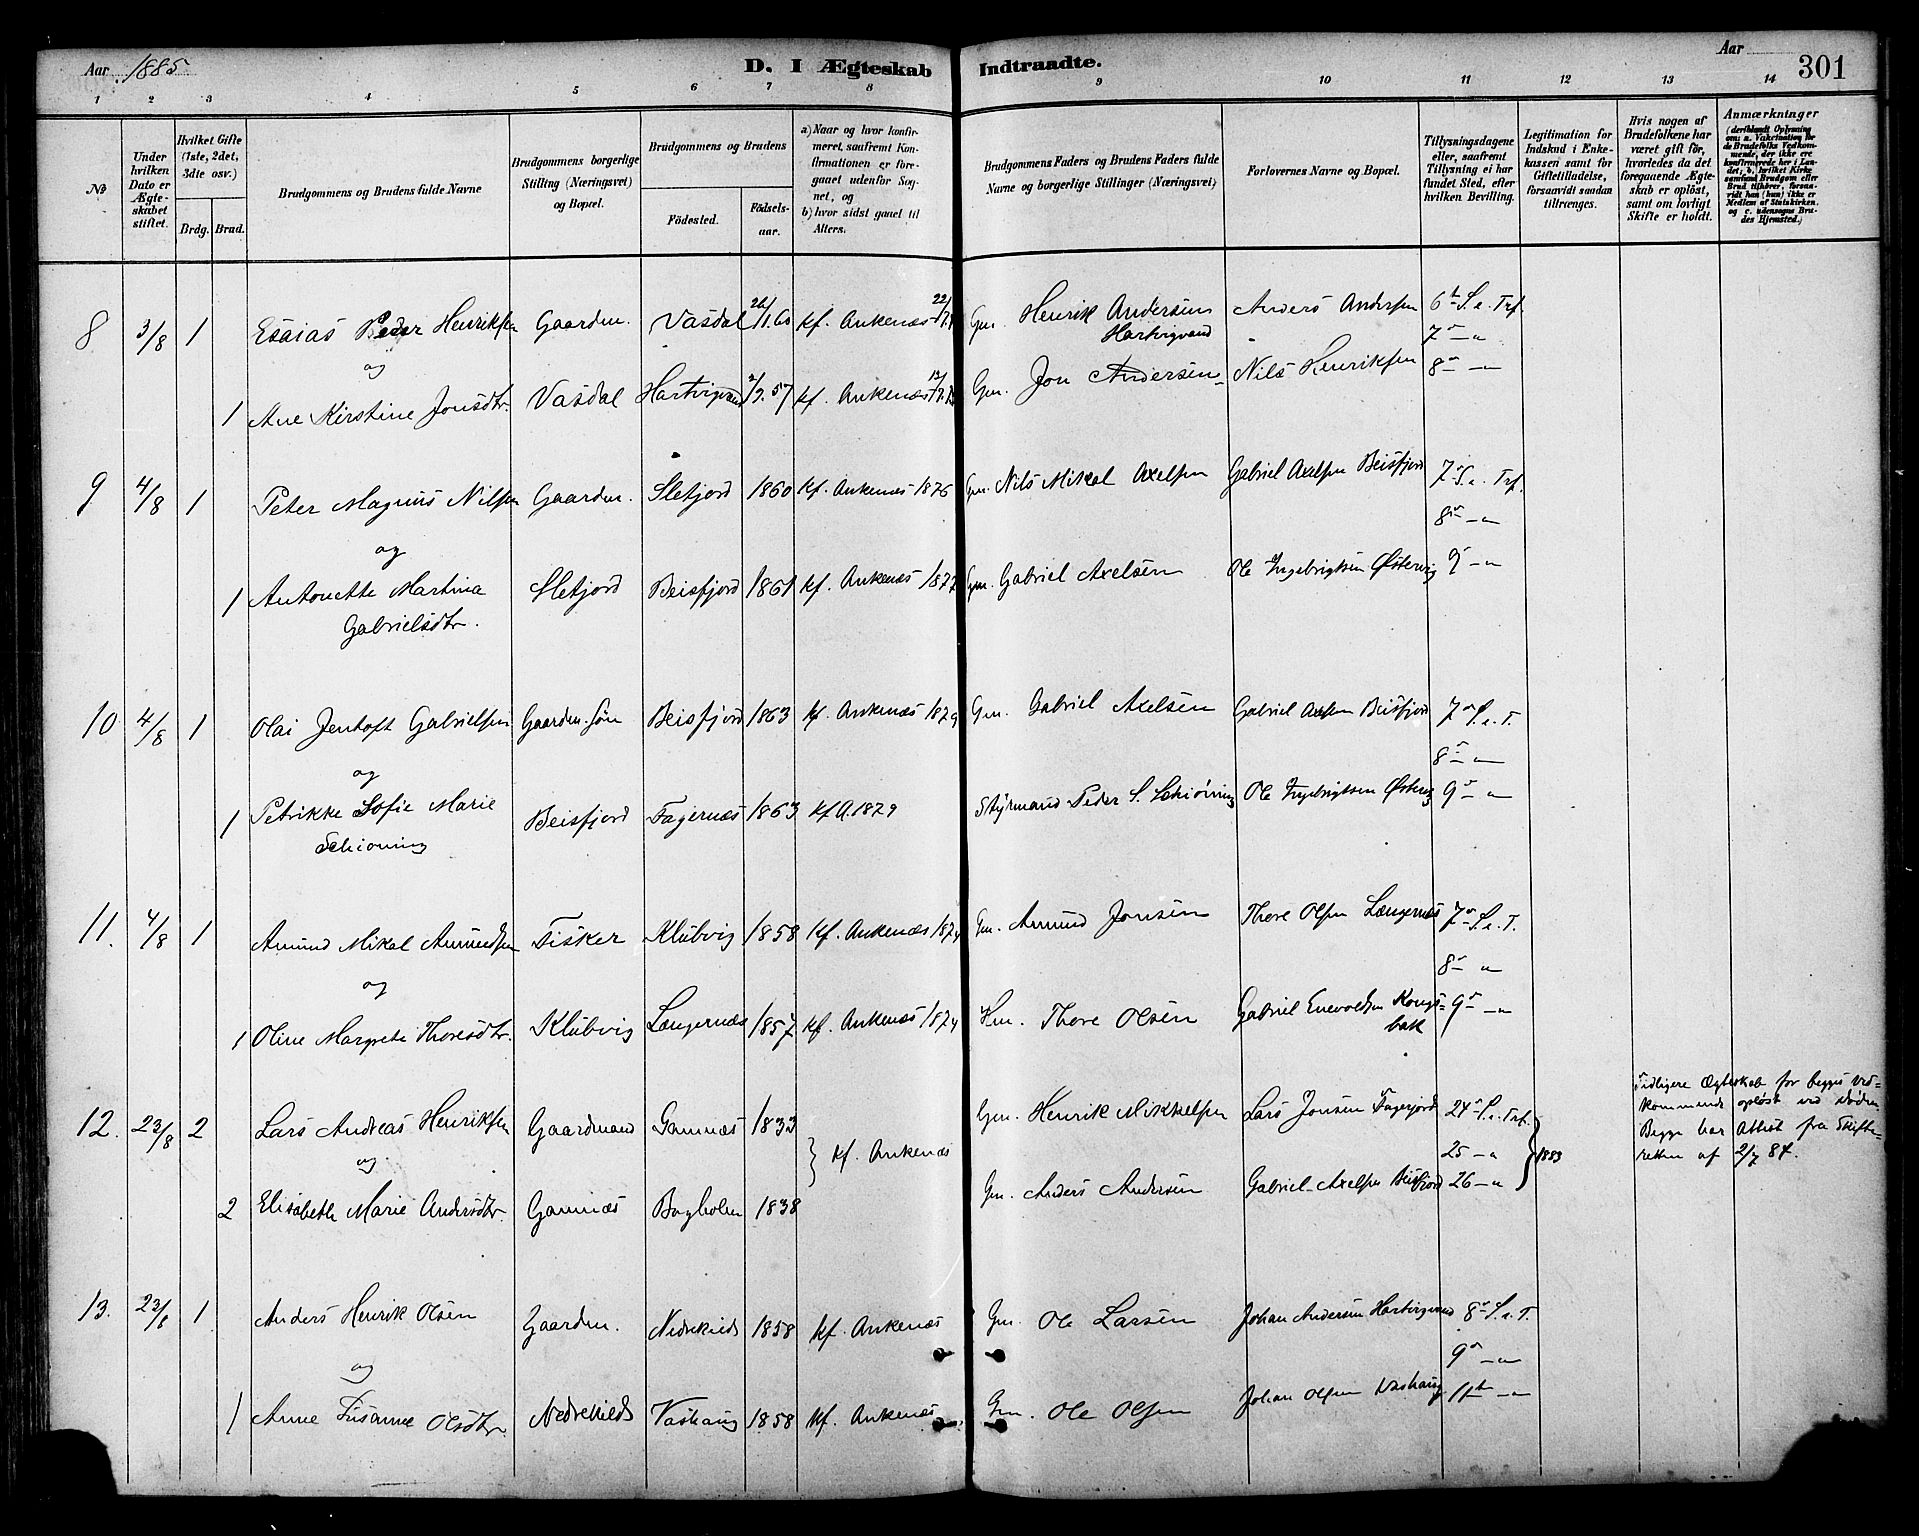 Aar 1885
D. I Ægteskab Indtraadte.
Aar
301
1 2 3 4 5 6 7 8 9 10 11 12 13 14
No
Under hvilken Dato er Ægteskabet stiftet.
Hvilket Gifte (1ste, 2det, 3die osv.)
Brdg. Brud.
Brudgommens og Brudens fulde Navne
Brudgommens borgerlige Stilling (Næringsvei) og Bopæl.
Brudgommens og Brudens
Födested.
Födsels-aar.
a) Naar og hvor konfirmeret, saafremt Konfirmationen er foregaaet udenfor Sognet, og
b) hvor sidst gaaet til Alters.
Brudgommens Faders og Brudens Faders fulde Navne og borgerlige Stillinger (Næringsvei)
Forlovernes Navne og Bopæl.
Tillysningsdagene eller, saafremt Tillysning ei har fundet Sted, efter hvilken Bevilling.
Legitimation for Indskud i Enkekassen samt for Giftetilladelse, forsaavidt saadan tiltrænges.
Hvis nogen af Brudefolkene har været gift før, hvorledes da det foregaaende Ægteskab er opløst, samt om lovligt Skifte er holdt.
Anmærkninger
8 3/8 1 Esaias Peder Henriksen Gaardm. Vasdal 26/1.60 kf. Ankenæs Gm. Henrik Andersen Hartvigvand Anders Andersen 6t S. e. Trf.
og 7 — "
1 Ane Kirstine Jonsdtr. Vasdal Hartvigvand 2/9.57 kf. Ankenæs Gm. Jon Andersen Nils Henriksen 8 — "
9 4/8 1 Peter Magnus Nilsen Gaardm. Sletjord 1860 kf. Ankenæs 1876 Gm. Nils Mikal Axelsen Gabriel Axelsen Beisfjord 7 S. e. Trf.
og 8 — "
1 Antonette Martina Gabrielsdtr. Sletjord Beisfjord 1861 kf. Ankenæs 1877 Gm. Gabriel Axelsen Ole Ingebrigtsen Østervig 9 — "
10 4/8 1 Olai Jentoft Gabrielsen Gaardm. søn Beisfjord 1863 kf. Ankenæs 1879 Gm. Gabriel Axelsen Gabriel Axelsen Beisfjord 7 S. e. T.
og 8 — "
1 Petrikke Sofie Marie Schiøning Beisfjord Fagernæs 1863 kf A. 1879 Styrmand Peder S. Schiøning Ole Ingebrigtsen Østervig 9 — "
11. 4/8 1 Amund Mikal Amundsen Fisker Klubvig 1858 kf. Ankenæs 1874 Gm. Amund Jonsen Thore Olsen Længernæs 7 S. e. T.
og 8 — "
1 Oline Margrete Thoresdtr. Klubvig Længernæs 1857 kf. Ankenæs 1874 Hm. Thore Olsen Gabriel Enevoldsen Kongsbak 9 — "
12. 23/8 2 Lars Andreas Henriksen Gaardmand Gamnæs 1833 } kf. Ankenæs Gm. Henrik Mikkelsen Lars Jonsen Fagerjord 24 S. e. Trf. } 1883 Tidligere Ægteskab for begges vedkommende opløst ved Døden. Begge har Attest fra Skifteretten af 2/7 84.
og 25 — "
2 Elisabeth Marie Andersdtr. Gamnæs Bogholm 1838 Gm. Anders Andersen Gabriel Axelsen Beisfjord 26 — "
13. 23/8 1 Anders Henrik Olsen Gaardm. 1858 kf. Ankenæs Gm. Ole Larsen Johan Andersen Hartvigvand 8 S. e. T.
og 9 — "
1 Anne Susanne Olsdtr. Vashaug 1858 kf. Ankenæs Gm. Ole Olsen Johan Olsen Vashaug 11t — "